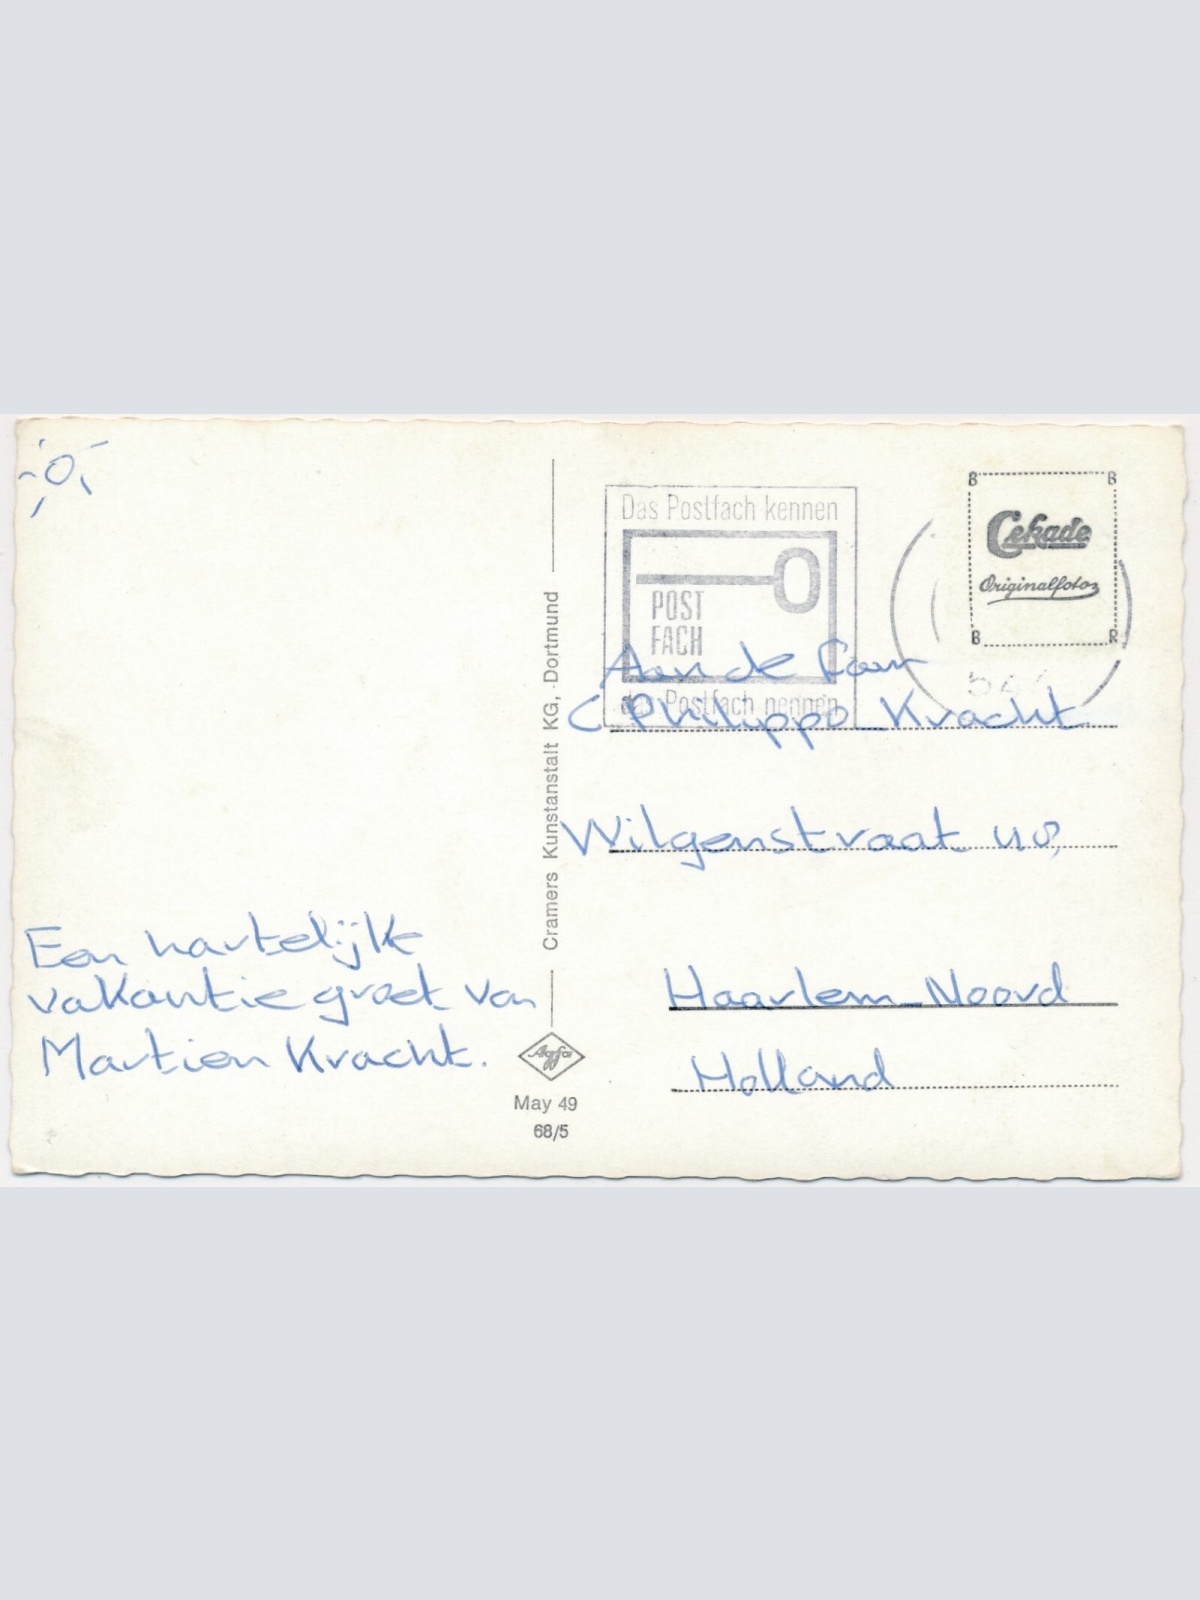 Een hartelijke
vakantie groet van
Martien Kracht.
Cramers Kunstanstalt KG, Dortmund
Agfa
May 49
68/5
Das Postfach kennen
POST
FACH
das Postfach nennen
B B
Cekade
Originalfoto
B R
Aan de fam
C Philippo Kracht
Wilgenstraat
Haarlem-Noord
Holland